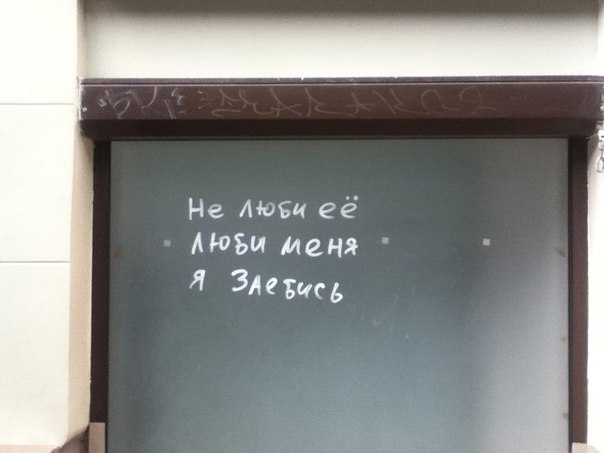 Не люби её
люби меня
я заебись